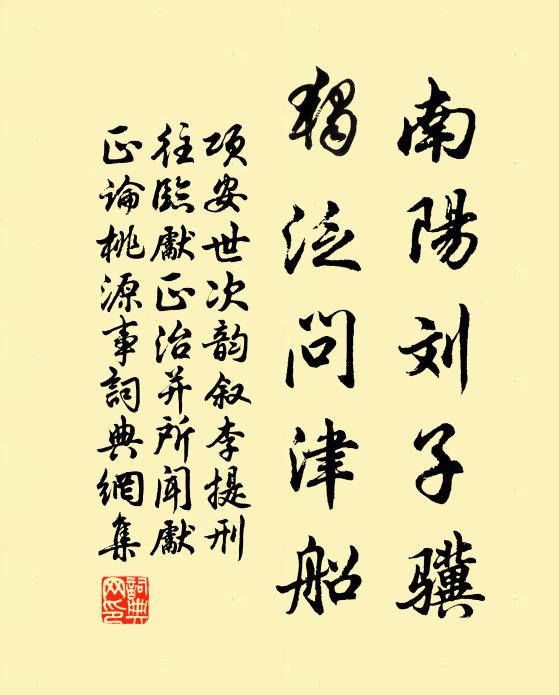 南陽刘子驥
独泛问津船
项安世次韵叙李提刑
往临獻正治并所闻獻
正论桃源事詞典網集
詞典網印